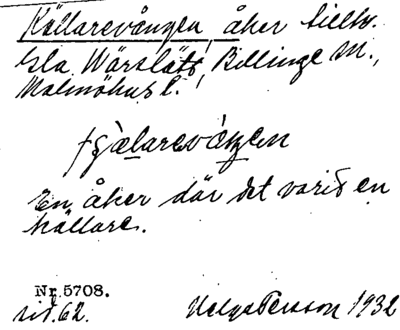 Källarevången, åker tillh.
Gla Wärslätt, Billinge sn.,
Malmöhus l.
En åker där det varit en
källare.
Nr. 5708.
sid. 62. Helga Persson 1932